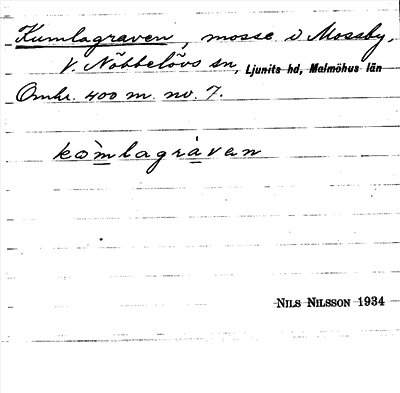 Kumlagraven, mosse i Mossby,
V. Nöbbelövs sn, Ljunits hd, Malmöhus län
Omkr. 400 m. nv. 7.
kòmlagràven
NILS NILSSON 1934